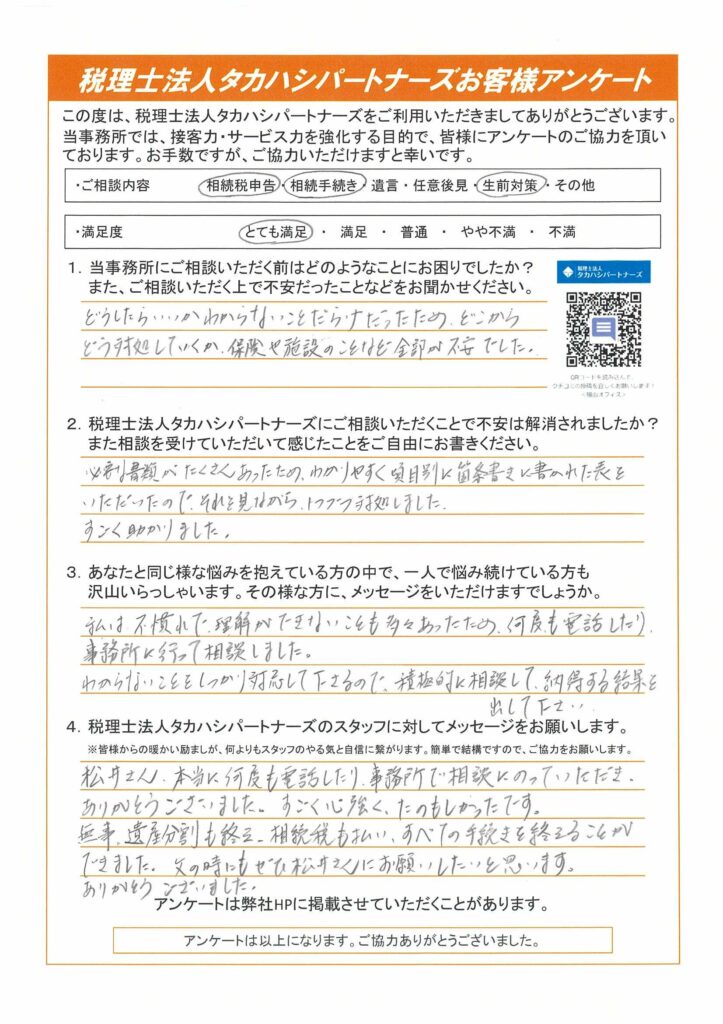 税理士法人タカハシパートナーズお客様アンケート
この度は、税理士法人タカハシパートナーズをご利用いただきましてありがとうございます。
当事務所では、接客力・サービス力を強化する目的で、皆様にアンケートのご協力を頂い
ております。お手数ですが、ご協力いただけますと幸いです。
・ご相談内容 相続税申告・相続手続き・遺言・任意後見・生前対策・その他
・満足度 とても満足 ・ 満足 ・ 普通 ・ やや不満 ・ 不満
1. 当事務所にご相談いただく前はどのようなことにお困りでしたか？
また、ご相談いただく上で不安だったことなどをお聞かせください。
税理士法人
タカハシパートナーズ
QRコードを読み込んで、
クチコミの投稿を宜しくお願いします！
<福山オフィス>
どうしたらいいかわからないことだらけだったため、どこから
どう対処していくか、保険や施設のことなど全部が不安でした。
2. 税理士法人タカハシパートナーズにご相談いただくことで不安は解消されましたか？
また相談を受けていただいて感じたことをご自由にお書きください。
必要書類がたくさんあったため、わかりやすく項目別に箇条書きに書かれた表を
いただだったので、それを見ながら、1つづつ対処しました。
すごく助かりました。
3. あなたと同じ様な悩みを抱えている方の中で、一人で悩み続けている方も
沢山いらっしゃいます。その様な方に、メッセージをいただけますでしょうか。
私は不慣れで、理解ができないことも多々あったため、何度も電話したり、
事務所に行って相談しました。
わからないことをしっかり対応して下さるので、積極的に相談して、納得する結果を
出して下さい。
4. 税理士法人タカハシパートナーズのスタッフに対してメッセージをお願いします。
※皆様からの暖かい励ましが、何よりもスタッフのやる気と自信に繋がります。簡単で結構ですので、ご協力をお願いします。
松井さん、本当に何度も電話したり、事務所で相談にのっていただき、
ありがとうございました。すごく心強く、たのもしかったです。
無事、遺産分割も終え、相続税も払い、すべての手続きを終えることが
できました。父の時にもぜひ松井さんにお願いしたいと思います。
ありがとうございました。
アンケートは弊社HPに掲載させていただくことがあります。
アンケートは以上になります。ご協力ありがとうございました。